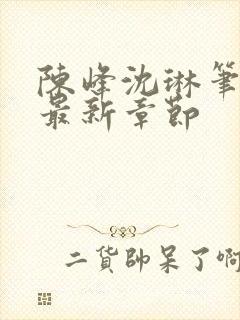 陳峰沈琳筆
最新章節
二貨帥呆了啊